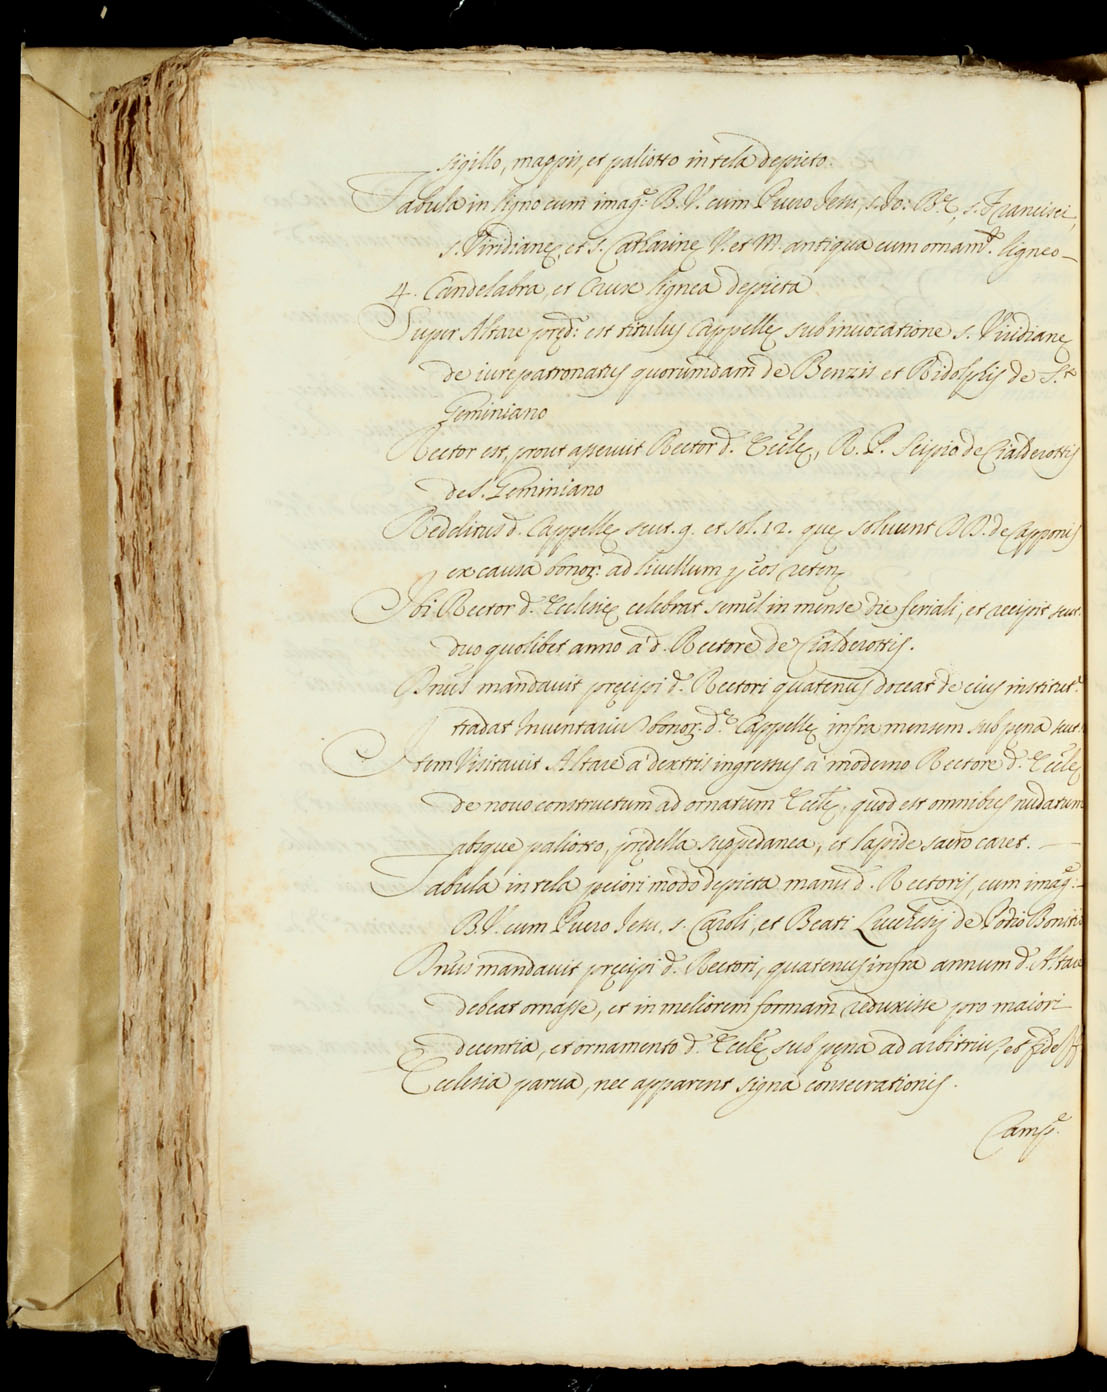 sigillo, mappis, et paliotto in tela depicto.
Tabula in ligno cum imag:e B. V. cum Puero Jesu, s. Jo: B.e, s. Francisci,
s. Viridianę, et s. Catharinę V. et M. antiqua cum ornam.to ligneo
4. Candelabra, et Crux lignea depicta
Super Altare pręd: est titulus Cappellę sub invocatione s. Viridianę
de iurepatronatus quorumdam de Benzis et Ridolphis de S.to
Geminiano
Rector est, prout asseruit Rector d. Ecclę, R. P. Scipio de Cialderottis
de S. Geminiano
Redditus d. Cappellę scut. 9. et sol. 12. que solvunt DD. de Capponis
ex causa bonor: ad livellum p eos reten.
Ibi Rector d. Ecclesię celebrat semel in mense die feriali, et recipit scut.
duo quolibet anno a d. Rectore de Cialderottis.
Dnus mandavit pręcipi d. Rectori quatenus doceat de eius institut.e
tradat Inventariu bonor: d.ę Cappellę infra mensem sub pęna scut.
Item Visitavit Altare a dextris ingressus a moderno Rectore d. Ecclę
de novo constructum ad ornatum Ecclę, quod est omnibus nudatum
absque paliotto, prędella suppedanea, et lapide sacro caret.
Tabula in tela peiori modo depicta manu d. Rectoris, cum imag:e
B. V. cum Puero Jesu, s. Caroli, et Beati Lucchesij de Podio Boniti
Dnus mandavit pręcipi d. Rectori, quatenus infra annum d. Altare
debeat ornasse, et in meliorem formam reduxisse pro maiori
decentia, et ornamento d. Ecclę sub pęna ad arbitriu, et
Ecclesia parva, nec apparent signa consecrationis.